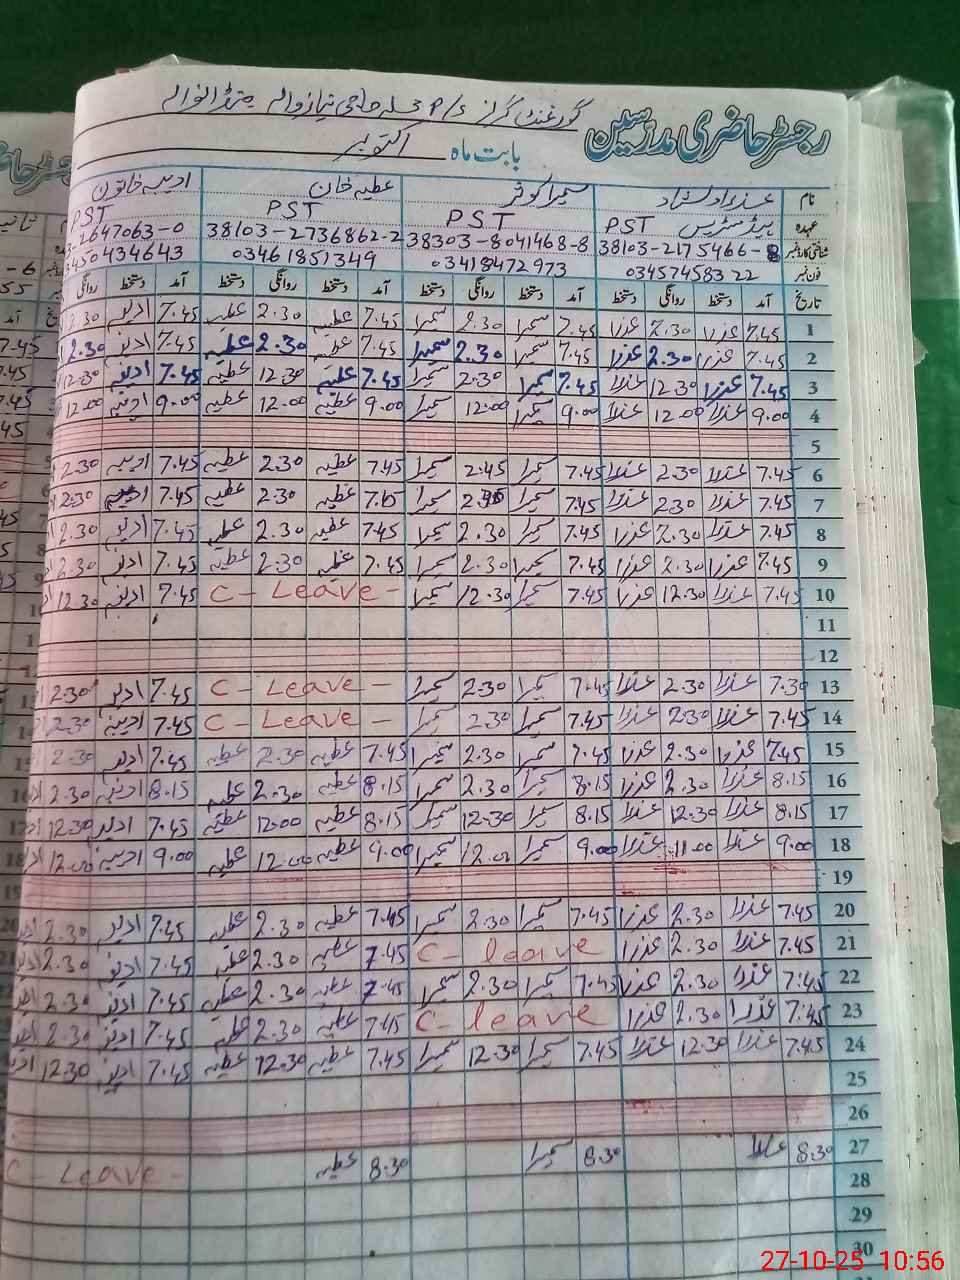 رجسٹر حاضری مدرسین گورنمنٹ گرلز P/S محلہ حاجی نیازوالہ
بابت ماہ اکتوبر
نام عذرا استاد سمیرا کوثر عطیہ خان ادیبہ خاتون
عہدہ ہیڈمسٹریس PST PST PST PST
شناختی کارڈ نمبر 38103-2175466-8 38303-8041468-8 38103-2736862-2 2647063-0
فون نمبر 03457458322 03418472973 03461851349 3450434643
تاریخ آمد دستخط روانگی دستخط آمد دستخط روانگی دستخط آمد دستخط روانگی دستخط آمد دستخط روانگی
1 7.45 عذرا 2.30 عذرا 7.45 سمیرا 2.30 سمیرا 7.45 عطیہ 2.30 عطیہ 7.45 ادیبہ 2.30
2 7.45 عذرا 2.30 عذرا 7.45 سمیرا 2.30 سمیرا 7.45 عطیہ 2.30 عطیہ 7.45 ادیبہ 2.30
3 7.45 عذرا 12.30 عذرا 7.45 سمیرا 2.30 سمیرا 7.45 عطیہ 12.30 عطیہ 7.45 ادیبہ 12.30
4 9.00 عذرا 12.00 عذرا 9.00 سمیرا 12.00 سمیرا 9.00 عطیہ 12.00 عطیہ 9.00 ادیبہ 12.00
5
6 7.45 عذرا 2.30 عذرا 7.45 سمیرا 2.45 سمیرا 7.45 عطیہ 2.30 عطیہ 7.45 ادیبہ 2.30
7 7.45 عذرا 2.30 عذرا 7.45 سمیرا سمیرا 7.45 عطیہ 2.30 عطیہ 7.45 ادیبہ 2.30
8 7.45 عذرا 2.30 عذرا 7.45 سمیرا 2.30 سمیرا 7.45 عطیہ 2.30 عطیہ 7.45 ادیبہ 2.30
9 7.45 عذرا 2.30 عذرا 7.45 سمیرا 2.30 سمیرا 7.45 عطیہ 2.30 عطیہ 7.45 ادیبہ 2.30
10 7.45 عذرا 12.30 عذرا 7.45 سمیرا 12.30 سمیرا C - Leave - 7.45 ادیبہ 12.30
11
12
13 7.30 عذرا 2.30 عذرا 7.45 سمیرا 2.30 سمیرا C - Leave - 7.45 ادیبہ 2.30
14 7.45 عذرا 2.30 عذرا 7.45 سمیرا 2.30 سمیرا C - Leave - 7.45 ادیبہ 2.30
15 7.45 عذرا 2.30 عذرا 7.45 سمیرا 2.30 سمیرا 7.45 عطیہ 2.30 عطیہ 7.45 ادیبہ 2.30
16 8.15 عذرا 2.30 عذرا 8.15 سمیرا 2.30 سمیرا 8.15 عطیہ 2.30 عطیہ 8.15 ادیبہ 2.30
17 8.15 عذرا 12.30 عذرا 8.15 سمیرا 12.30 سمیرا 8.15 عطیہ 12.00 عطیہ 7.45 ادیبہ 12.30
18 9.00 عذرا 11.00 عذرا 9.00 سمیرا 12.00 سمیرا 9.00 عطیہ 12.00 عطیہ 9.00 ادیبہ 12.00
19
20 7.45 عذرا 2.30 عذرا 7.45 سمیرا 2.30 سمیرا 7.45 عطیہ 2.30 عطیہ 7.45 ادیبہ 2.30
21 7.45 عذرا 2.30 عذرا C - leave 7.45 عطیہ 2.30 عطیہ 7.45 ادیبہ 2.30
22 7.45 عذرا 2.30 عذرا 7.45 سمیرا 2.30 سمیرا 7.45 عطیہ 2.30 عطیہ 7.45 ادیبہ 2.30
23 7.45 عذرا 2.30 عذرا C - leave 7.45 عطیہ 2.30 عطیہ 7.45 ادیبہ 2.30
24 7.45 عذرا 12.30 عذرا 7.45 سمیرا 12.30 سمیرا 7.45 عطیہ 12.30 عطیہ 7.45 ادیبہ 12.30
25
26
27 8.30 عذرا 8.30 سمیرا 8.30 عطیہ C - Leave -
28
29
30
27-10-25 10:56